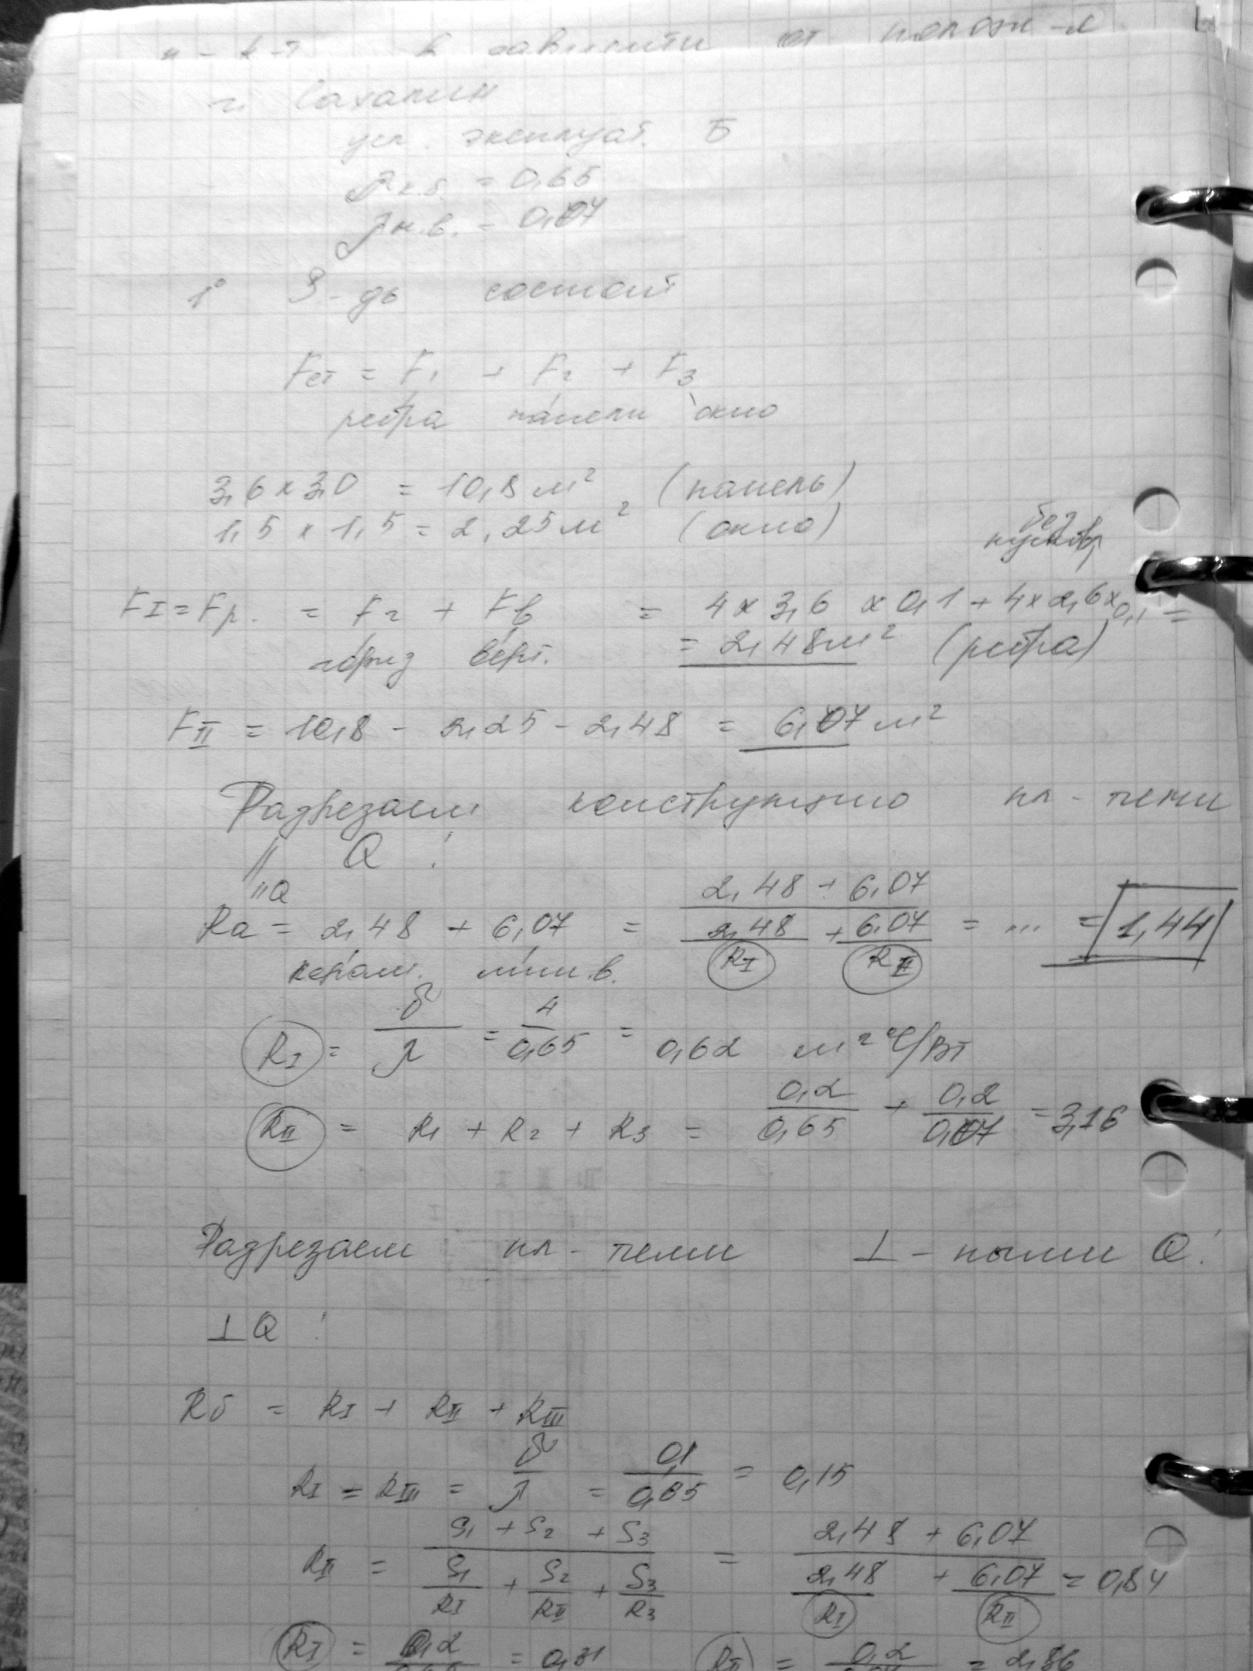 в зависимости от полож-я
г. Сахалин
усл. эксплуат. Б
λк.б. = 0,65
λм.в. = 0,07
1° З-дь состоит
Fст = F1 + F2 + F3
ребра панели окно
3,6 x 3,0 = 10,8 м² (панель)
1,5 x 1,5 = 2,25 м² (окно)
без
FI = Fр. = Fг + Fв = 4 x 3,6 x 0,1 + 4 x 2,6 x 0,1 =
гориз верт. = 2,48 м² (ребра)
FII = 10,8 - 2,25 - 2,48 = 6,07 м²
Разрезаем конструкцию пл-тями
// Q :
Ra //Q = 2,48 + 6,07 = (2,48 + 6,07) / (2,48/RI + 6,07/RII) = ... = 1,44
керам. мин.в.
RI = δ/λ = 4/0,65 = 0,62 м² °C/Вт
RII = R1 + R2 + R3 = 0,2/0,65 + 0,2/0,07 = 3,16
Разрезаем пл-тями ⊥-ными Q:
⊥Q :
Rб = RI + RII + RIII
RI = RIII = δ/λ = 0,1/0,65 = 0,15
RII = (S1 + S2 + S3) / (S1/RI + S2/RII + S3/R3) = (2,48 + 6,07) / (2,48/RI + 6,07/RII) = 0,84
RI = 0,2/0,65 = 0,31 RII = 0,2/0,07 = 2,86